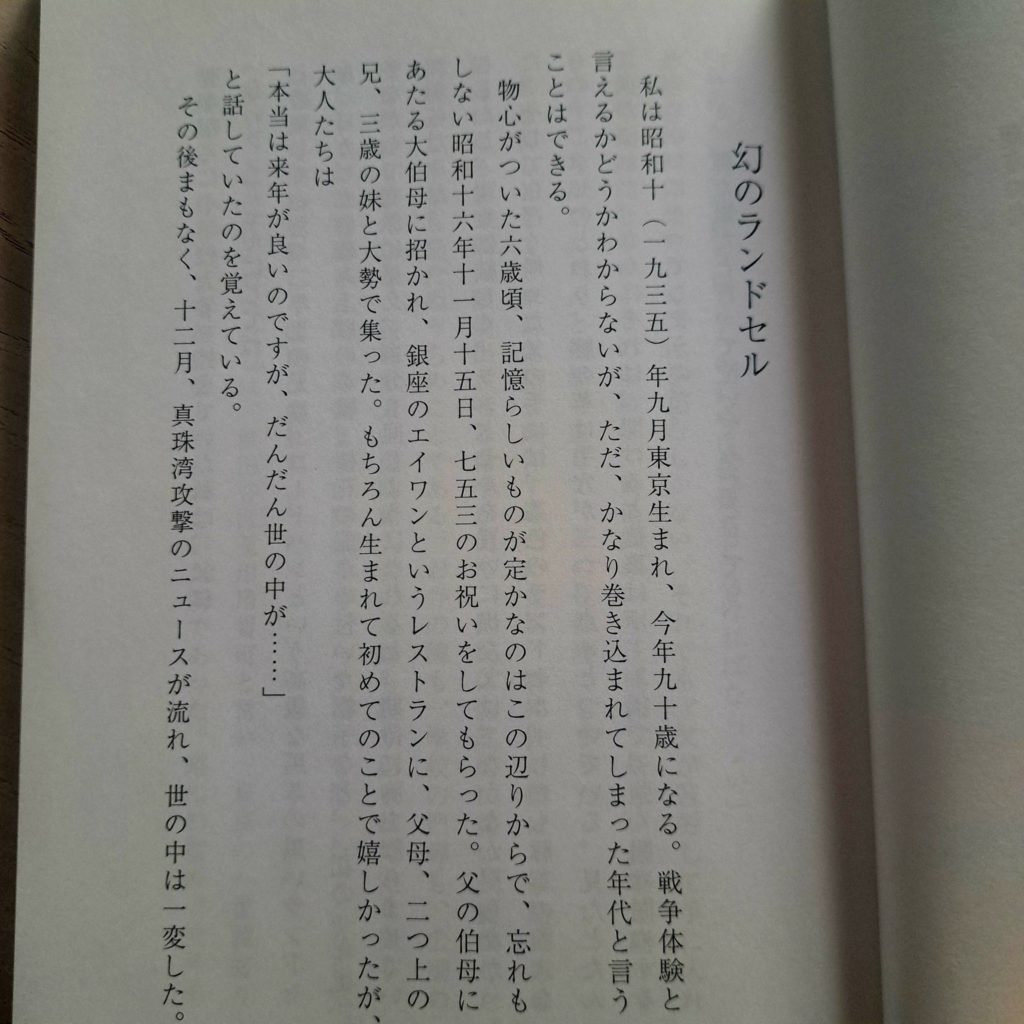 幻のランドセル
私は昭和十（一九三五）年九月東京生まれ、今年九十歳になる。戦争体験と
言えるかどうかわからないが、ただ、かなり巻き込まれてしまった年代と言う
ことはできる。
物心がついた六歳頃、記憶らしいものが定かなのはこの辺りからで、忘れも
しない昭和十六年十一月十五日、七五三のお祝いをしてもらった。父の伯母に
あたる大伯母に招かれ、銀座のエイワンというレストランに、父母、二つ上の
兄、三歳の妹と大勢で集った。もちろん生まれて初めてのことで嬉しかったが、
大人たちは
「本当は来年が良いのですが、だんだん世の中が……」
と話していたのを覚えている。
その後まもなく、十二月、真珠湾攻撃のニュースが流れ、世の中は一変した。